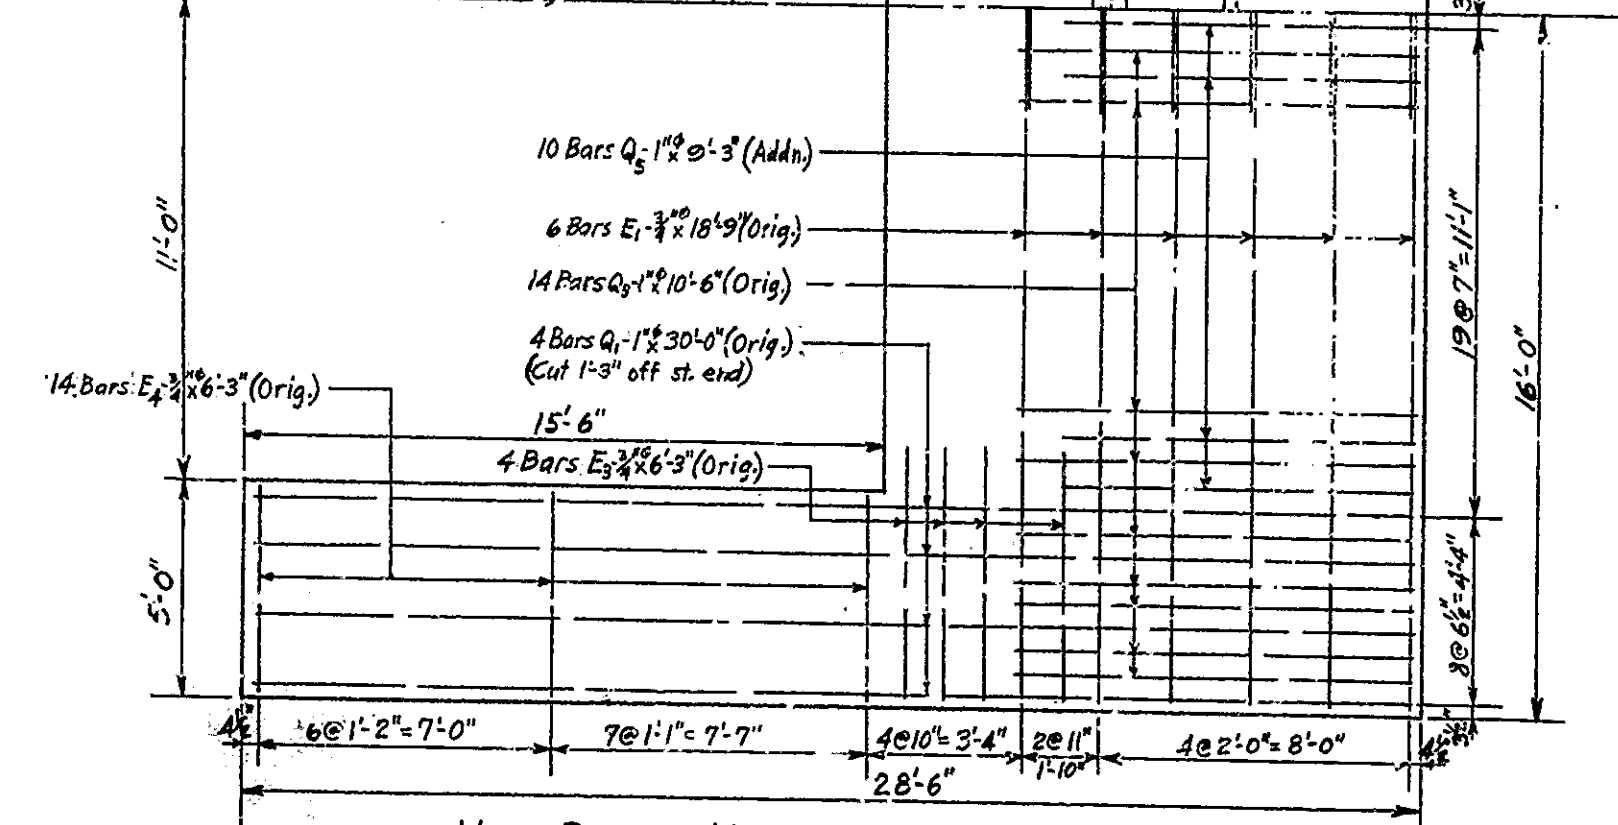 10 Bars Q5-1"ϕ x 9'-3" (Addn.)
6 Bars E1-3/4"ϕ x 18'-9" (Orig.)
14 Bars Q3-1"ϕ x 10'-6" (Orig.)
4 Bars Q1-1"ϕ x 30'-0" (Orig.)
(Cut 1'-3" off st. end)
14 Bars E4-3/4"ϕ x 6'-3" (Orig.)
15'-6"
4 Bars E3-3/4"ϕ x 6'-3" (Orig.)
11'-0"
5'-0"
19@7"=11'-1"
16'-0"
8@6½"=4'-4"
4½"
6@1'-2"=7'-0"
7@1'-1"=7'-7"
4@10"=3'-4"
2@11"
1'-10"
4@2'-0"=8'-0"
4½"
28'-6"